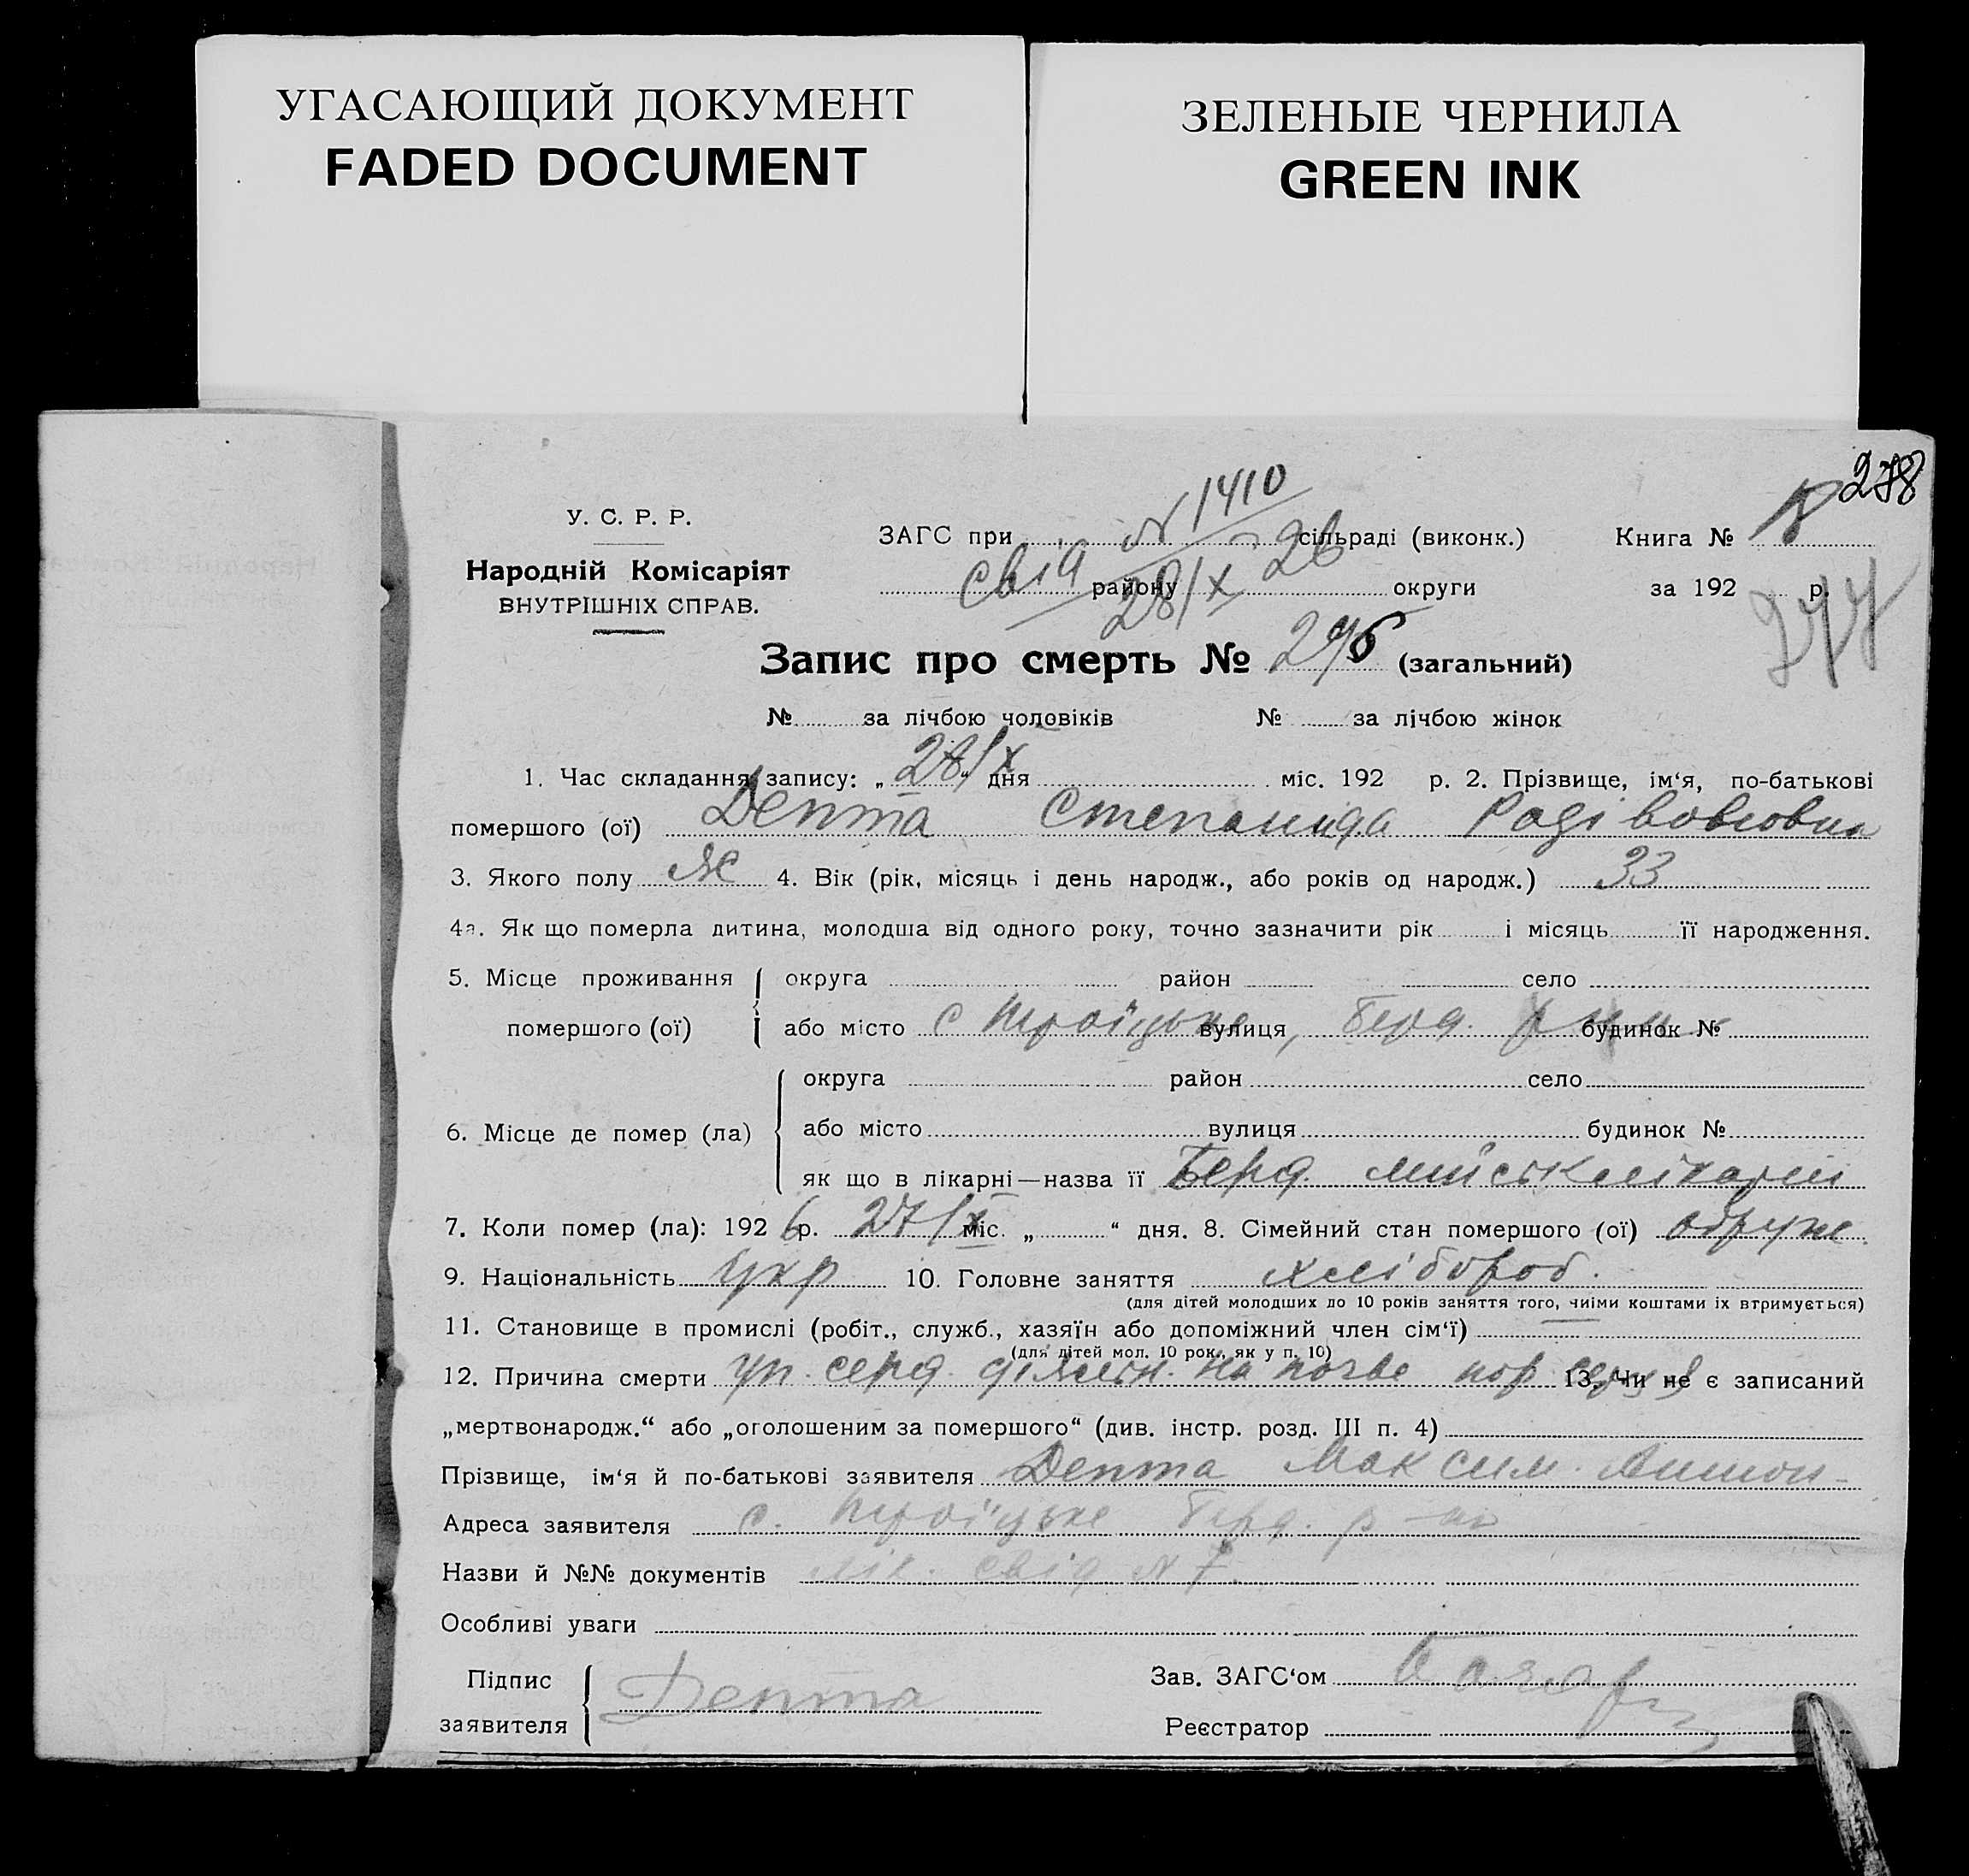 УГАСАЮЩИЙ ДОКУМЕНТ
FADED DOCUMENT
ЗЕЛЕНЫЕ ЧЕРНИЛА
GREEN INK
278
У. С. Р. Р.
Народній Комісаріят
ВНУТРІШНІХ СПРАВ.
ЗАГС при № 1410 сільраді (виконк.) Книга №
свід району 28/X 26 округи за 192 р.
277
Запис про смерть № (загальний)
№ за лічбою чоловіків № за лічбою жінок
1. Час складання запису: „ 28/X “ дня міс. 192 р. 2. Прізвище, ім‘я, по-батькові
помершого (ої) Депта Степанида
3. Якого полу Ж 4. Вік (рік, місяць і день народж., або років од народж.) 33
4а. Як що померла дитина, молодша від одного року, точно зазначити рік і місяць її народження.
5. Місце проживання округа район село
помершого (ої) або місто с Троїцьке, вулиця Берд. будинок №
6. Місце де помер (ла) округа район село
або місто вулиця будинок №
як що в лікарні—назва її Берд.
7. Коли помер (ла): 1926 р. 27/X міс. „ “ дня. 8. Сімейний стан помершого (ої) одруж.
9. Національність Укр 10. Головне заняття хлібороб.
(для дітей молодших до 10 років заняття того, чиїми коштами їх втримується)
11. Становище в промислі (робіт., служб., хазяїн або допоміжний член сім‘ї)
(для дітей мол. 10 рок., як у п. 10)
12. Причина смерти уп. серд. діяльн. на почве пор 13. Чи не є записаний
„мертвонародж.“ або „оголошеним за помершого“ (див. інстр. розд. III п. 4)
Прізвище, ім‘я й по-батькові заявителя Депта Максим. Антон-
Адреса заявителя с. Троїцьке Берд. р-ну
Назви й №№ документів лік. свід № 7.
Особливі уваги
Підпис
заявителя Депта
Зав. ЗАГС‘ом
Реєстратор